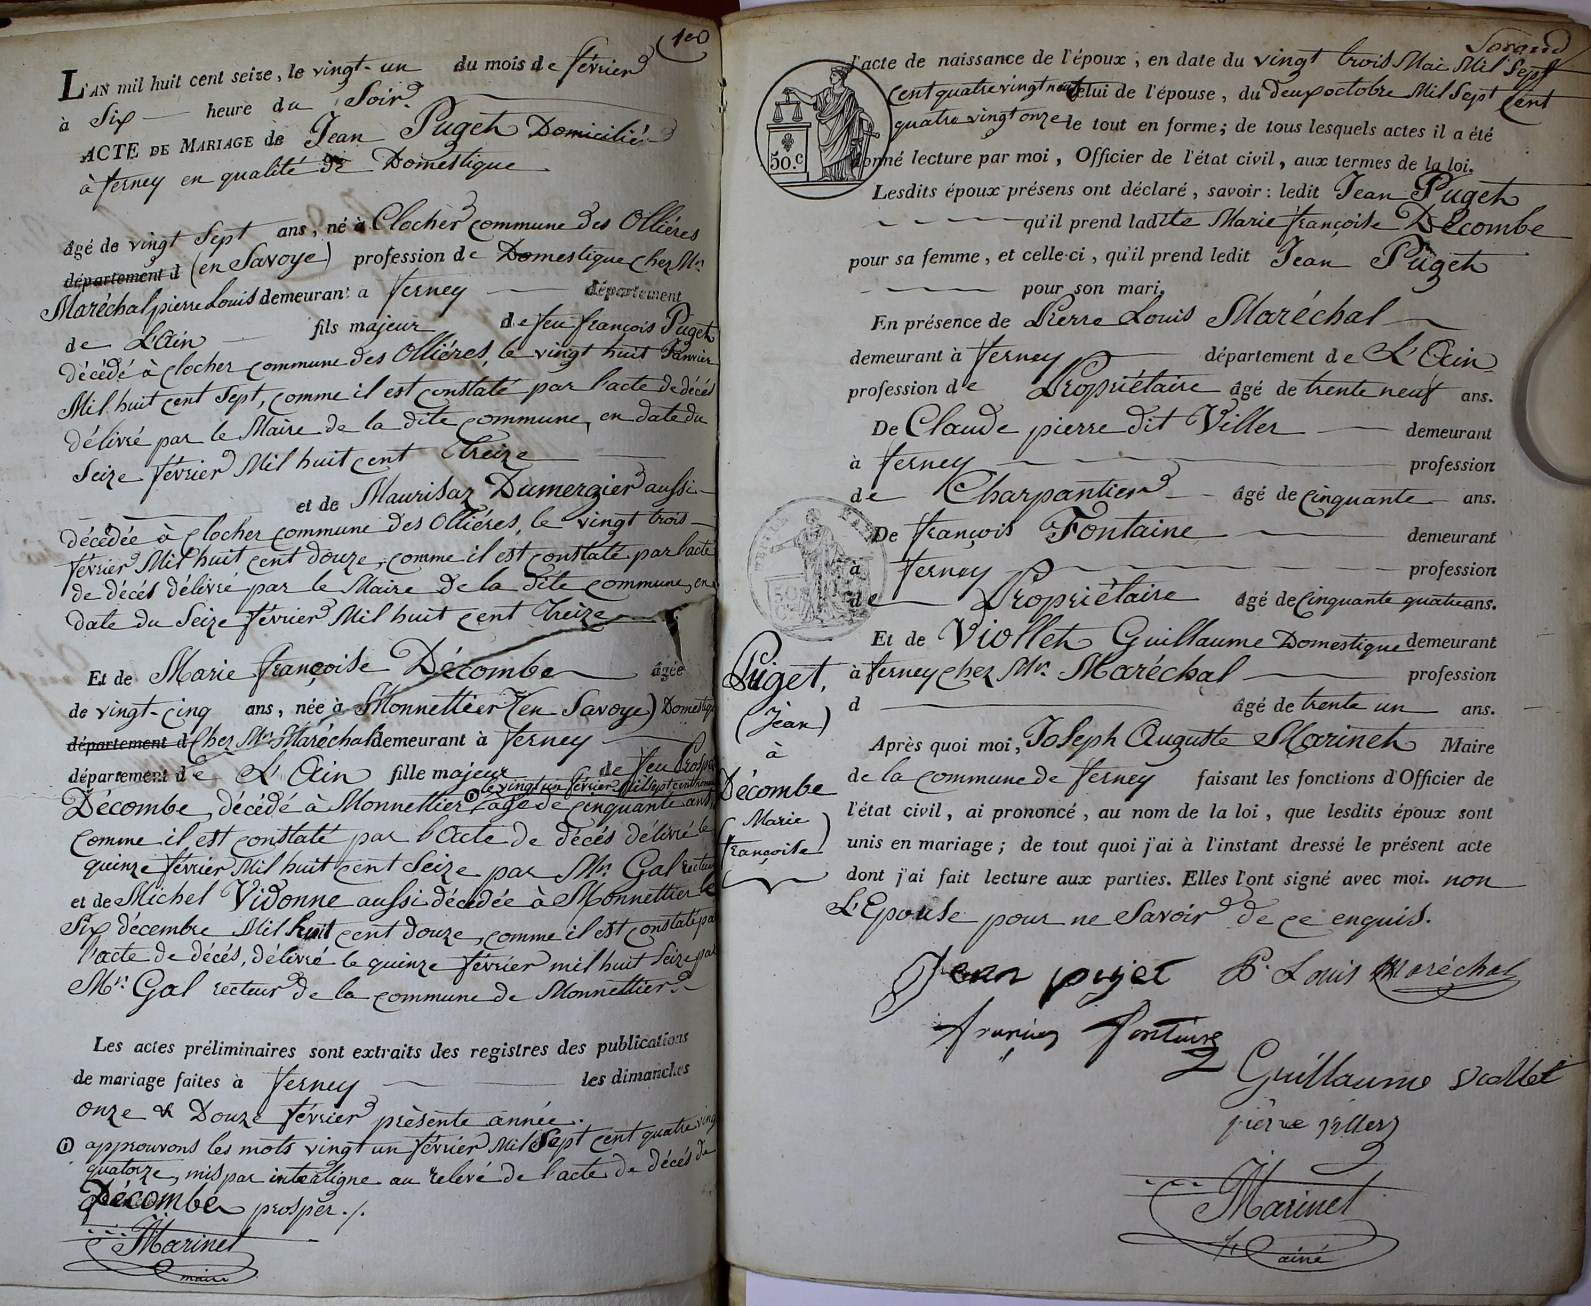 100
L'AN mil huit cent seize, le vingt-un du mois de février
à Six heure du Soir.
ACTE DE MARIAGE de Jean Puget Domicilié
à ferney en qualité de Domestique
âgé de vingt Sept ans, né à Clocher commune des Olliéres
département d (en Savoye) profession de Domestique chez Mr.
Maréchal pierre Louis demeurant à ferney département
de L'Ain fils majeur de feu françois Puget
décédé à clocher commune des Olliéres, le vingt huit Janvier
Mil huit cent Sept, comme il est constaté par l'acte de décés
délivré par le Maire de la dite commune, en date du
Seize février Mil huit cent Treize
et de Maurisaz Dumergier aussi
décédée à clocher commune des Olliéres, le vingt trois
février Mil huit cent douze, comme il est constaté par l'acte
de décés délivré par le Maire de la dite commune, en
date du Seize février Mil huit cent Treize
Et de Marie françoise Décombe âgée
de vingt-cinq ans, née à Monnettier (en Savoye) Domestique
département d Chez Mr. Maréchal demeurant à ferney
département de L'Ain fille majeur de feu Prosper
le vingt un février Mil Sept cent
Décombe, décédé à Monnettier âgé de cinquante ans,
comme il est constaté par l'Acte de décés délivré le
quinze février Mil huit cent Seize par Mr. Gal recteur
et de Michel Vidonne aussi décédée à Monnettier le
Six décembre Mil huit cent douze, comme il est constaté par
l'acte de décés, délivré le quinze février mil huit Seize par
Mr. Gal recteur de la commune de Monnettier
Les actes préliminaires sont extraits des registres des publications
de mariage faites à ferney les dimanches
onze & Douze février présente année.
approuvons les mots vingt un février Mil Sept cent quatre vingt
quatorze, mis par interligne au relevé de l'acte de décés de
Décombe prosper ./.
Marinet
maire
l'acte de naissance de l'époux, en date du vingt trois Mai Mil Sept
cent quatre vingt neuf celui de l'épouse, du deux octobre Mil Sept Cent
quatre vingt onze le tout en forme; de tous lesquels actes il a été
donné lecture par moi, Officier de l'état civil, aux termes de la loi.
50.c
Lesdits époux présens ont déclaré, savoir: ledit Jean Puget
qu'il prend ladite Marie françoise Décombe
pour sa femme, et celle-ci, qu'il prend ledit Jean Puget
pour son mari,
En présence de Pierre Louis Maréchal
demeurant à ferney département de L'Ain
profession de Propriétaire âgé de trente neuf ans.
De Claude pierre dit Viller demeurant
à ferney profession
de Charpantier âgé de cinquante ans.
De françois Fontaine demeurant
à ferney profession
de Propriétaire âgé de cinquante quatre ans.
Et de Viollet Guillaume Domestique demeurant
à ferney chez Mr. Maréchal profession
d âgé de trente un ans.
Puget,
(Jean)
à
Décombe
Marie
françoise
Après quoi moi, Joseph Auguste Marinet Maire
de la commune de ferney faisant les fonctions d'Officier de
l'état civil, ai prononcé, au nom de la loi, que lesdits époux sont
unis en mariage; de tout quoi j'ai à l'instant dressé le présent acte
dont j'ai fait lecture aux parties. Elles l'ont signé avec moi. non
L'Epouse pour ne Savoir de ce enquis.
Jean pujet P. Louis Maréchal
françois fontaine
Guillaume viollet
pierre viller
Marinet
ainé